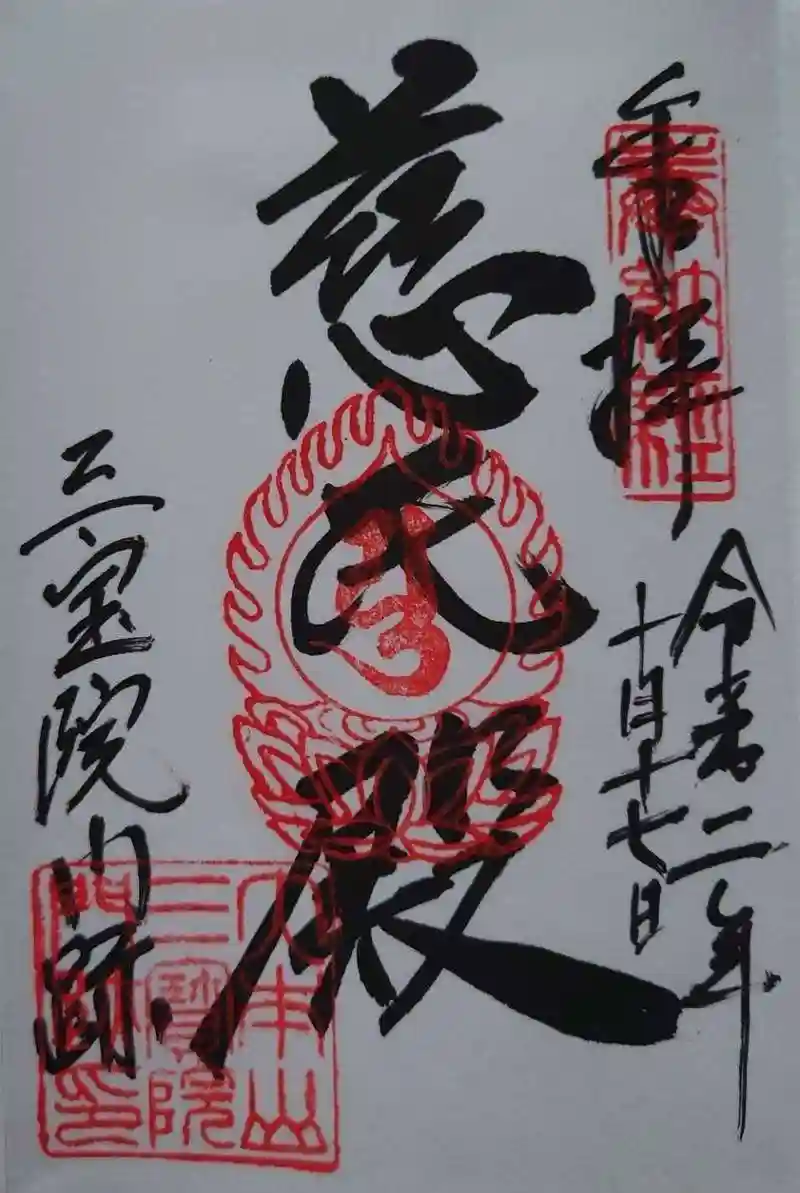 奉拝
令和二年
十月十七日
慈氏殿
三宝院門跡
奉納経
大本山
三寶院
門跡印